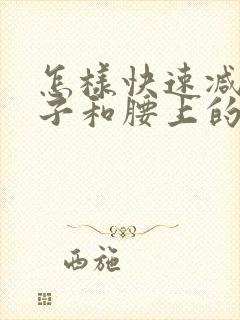 怎样快速减
子和腰上的
西施